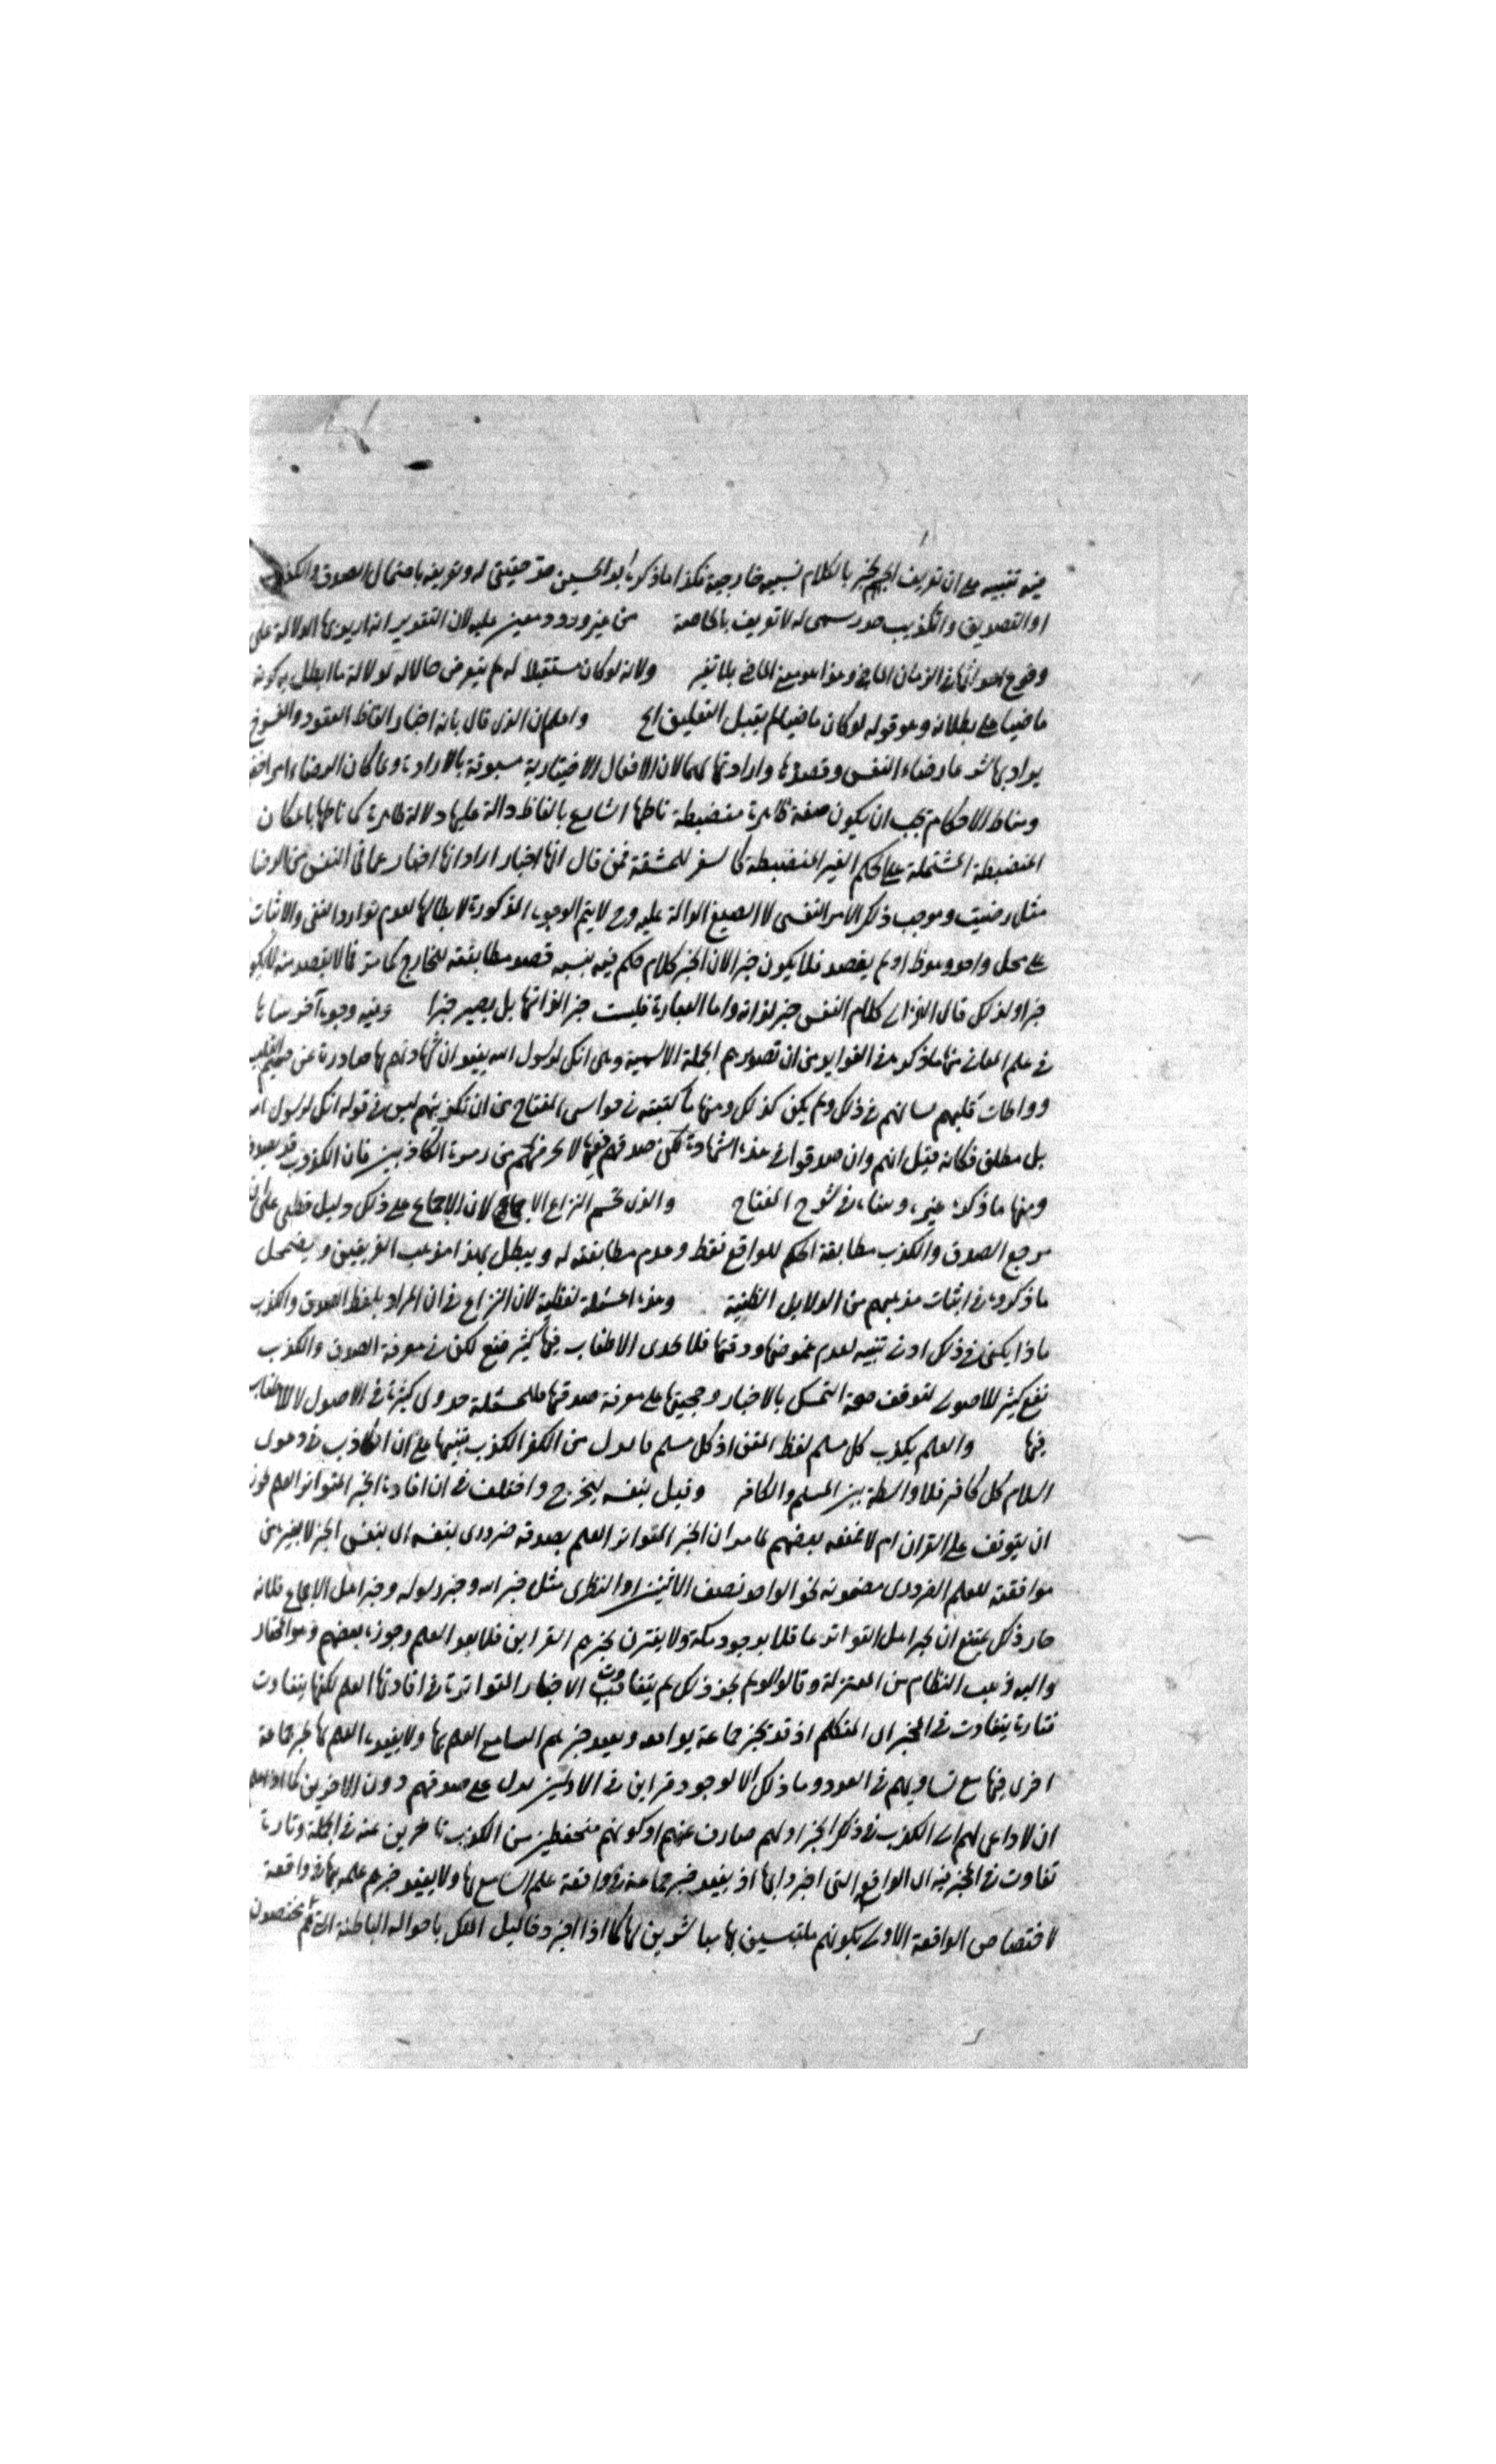 فيه تنبيه على ان تعريف الخبر بالكلام نسبيه خارجية فكذا ما ذكره ابو الحسين حد حقيقي له وتعريفه باحتمال الصدق والكذب
او التصديق والتكذيب حد رسمي له لا تعريف بالخاصة من غير ورود معين عليه لان التقدير انه اريد بها الدلالة على
وقوع احداثها في الزمان الماضي وهذا هو معنى الماضي بلا تغير ولانه لو كان مستقبلا له لم يتعرض حالا له لدلالة ما ابطل به كونه
ماضيا على بطلانه وهو قوله لو كان ماضيا لم يقبل التعليق الخ واعلم ان الذي قال بانه اخبار الفاظ العقود والفسوخ
يراد بها رضاء النفس وقصدها وارادتها لان الافعال الاختيارية مسبوقة بالارادة ولما كان الرضاء امرا خفيا
ومناط الاحكام يجب ان يكون صفة ظاهرة منضبطة ناطها الشارع بالفاظ دالة عليها دلالة ظاهرة كما ناطها
المنضبطة المشتملة على الحكم الغير المنضبطة كالسفر للمشقة فمن قال انها اخبار اراد انها اخبار عما في النفس من الرضا
مثل رضيت وموجب ذلك الامر النفسي لا الصيغ الدالة عليه وح لا يتم الوجوه المذكورة لابطالها لعدم توارد النفي والاثبات
على محل واحد وهو ظ او لم يقصد فلا يكون خبرا لان الخبر كلام حكم فيه بنسبه قصد مطابقته للخارج كما مر فما لا يقصد منه لا يكون
خبرا ولذلك قال الغزالي كلام النفس خبر لذاته واما العبارة فليست خبرا لذاتها بل يصير خبرا وفيه وجوه آخر بيناها
في علم المعاني منها ما ذكره في الفوايد من ان تصديرهم الجملة الاسمية وهي انك لرسول الله يفيد ان شهادتهم بها صادرة عن صميم القلب
وواطات قلبهم لسانهم في ذلك ولم يكن كذلك ومنها ما كتبته في حواشي المفتاح من ان تكذيبهم ليس في قوله انك لرسول الله
بل مطلق فكانه قيل انهم وان صدقوا في هذه الشهادة لكن صدقهم فيها لا يخرجهم من زمرة الكاذبين فان الكذوب قد يصدق
ومنها ما ذكره غيره وبيناه في شرح المفتاح والذي يحسم النزاع الاجماع لان الاجماع على ذلك دليل قطعي على ان
مرجع الصدق والكذب مطابقة الحكم للواقع فقط وعدم مطابقته له ويبطل بهذا مذهب الفريقين ويضمحل
ما ذكروه في اثبات مذهبهم من الدلايل الظنية وهذه المسئلة لفظية لان النزاع في ان المراد بلفظ الصدق والكذب
ماذا يكفي في ذلك ادنى تنبيه لعدم غموضها ودقتها فلا يجدي الاطناب فيها كثير نفع لكن في معرفة الصدق والكذب
نفع كثير للاصولي لتوقف صحة التمسك بالاخبار وحجيتها على معرفة صدقها فللمسئلة جدوى كثيرة في الاصول لا للاطناب
فيها والعلم بكذب كل مسلم لفظ المتن اذ كل مسلم ما بدل من الكفر الكذب تنبيها على ان الكاذب في دعوى
السلام كل كافر فلا واسطة بين المسلم والكافر وقيل بنفسه ليخرج واختلف في ان افادة الخبر المتواتر العلم
ان يتوقف على القران ام لا فمنعه بعضهم لما مر ان الخبر المتواتر العلم بصدقه ضروري بنفسه اي بنفس الخبر لا بغيره من
موافقته للعلم الضروري مضمونه نحو الواحد نصف الاثنين او النظري مثل خبر الله وخبر رسوله وخبر اهل الاجماع فلانه
جاز ذلك يمتنع ان يخبر اهل التواتر عاقلا بوجود مكة ولا يقترن بخبرهم القراين فلا يفيد العلم وجوزه بعضهم وهو المختار
واليه ذهب النظام من المعتزلة وقالوا لو لم يجز ذلك لم يتفاوت الاخبار المتواترة في افادتها العلم لكنها يتفاوت
فتارة يتفاوت في المخبر اي المتكلم اذ قد يخبر جماعة بواقعه ويفيد خبرهم السامع العلم بها ولا يفيده العلم بها خبر جماعة
اخرى فيها مع تساويهم في العدد وما ذلك الا لوجود قراين في الاولين يدل على صدقهم دون الاخرين كما اذا علم
ان لا داعي لهم الى الكذب في ذكر الخبر او لهم صارف عنهم او كونهم متحفظين من الكذب نافرين عنه في الجملة وتارة
تفاوت في الخبر فيه اي الواقع التي اخبروا بها اذ يفيد خبر جماعة في واقعة علم السامع بها ولا يفيد خبرهم علمه بها في واقعة
لاختصاص الواقعة الاولى بكونهم ملتبسين بها مباشرين لها كما اذا اخبر دخاليل الملك باحواله الباطنة التي هم مختصون